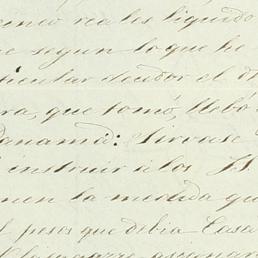 cinco reales liquido
segun lo que he
ticular deudor el d
ra, que tomó, llebó
Panamá: Sirvase
instruir á los S.S.
nen la medida qu
pesos que debia Casa